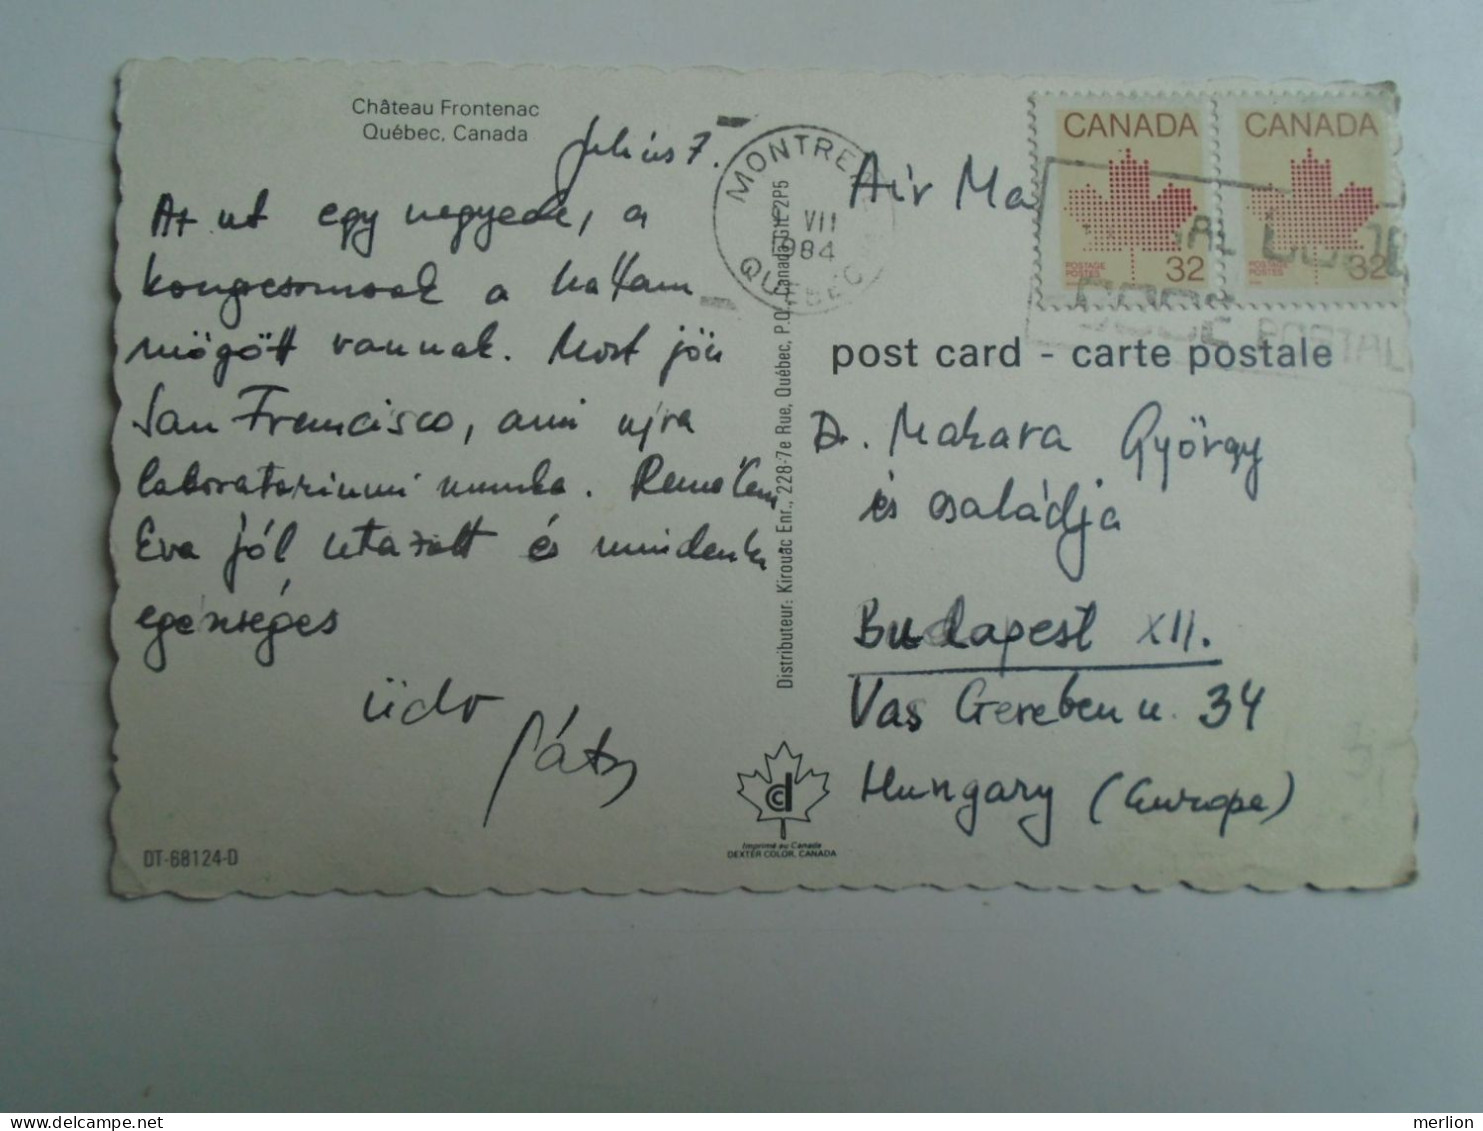 Château Frontenac
Québec, Canada
Julius 7.
Az ut egy negyede, a
kongresszusok a hátam
mögött vannak. Most jön
San Francisco, ami ujra
laboratoriumi munka. Remélem
Eva jól utazott és mindenki
egészséges
üdv
DT-68124-D
MONTREAL
VII
1984
QUEBEC
Distributeur: Kirouac Enr., 228-7e Rue, Québec, P.Q. Canada G1L 2P5
Imprimé au Canada
DEXTER COLOR, CANADA
Air Ma
CANADA
POSTAGE
POSTES
32
CANADA
POSTAGE
POSTES
32
CODE POSTAL
post card - carte postale
Dr. Makara György
és családja
Budapest XII.
Vas Gereben u. 34
Hungary (Europe)
merlion
delcampe.net